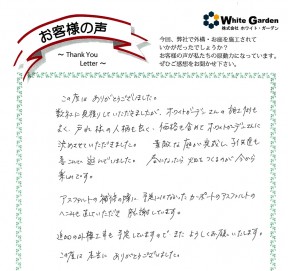 White Garden
株式会社 ホワイト・ガーデン
お客様の声
～ Thank You
Letter ～
今回、弊社で外構・お庭を施工されて
いかがだったでしょうか？
お客様の声が私たちの原動力になっています。
ぜひご感想をお聞かせ下さい。
この度は ありがとうございました。
数社に見積りしていただきましたが、ホワイトガーデンさんの施工例も
多く、戸れ様の人柄も良く、価格も含めてホワイトガーデンさんに
決めさせていただきました。 素敵な庭が完成し、子供達も
喜こんで遊んでいました。 春になったら 花をうえるのが今から
楽しみです。
アスファルトの補修の際に 予定になかった カーポートのアスファルトの
へこみも直していただき 感謝しています。
追加の外構工事も予定していますので また よろしくお願いいたします。
この度は 本当に ありがとうございました。